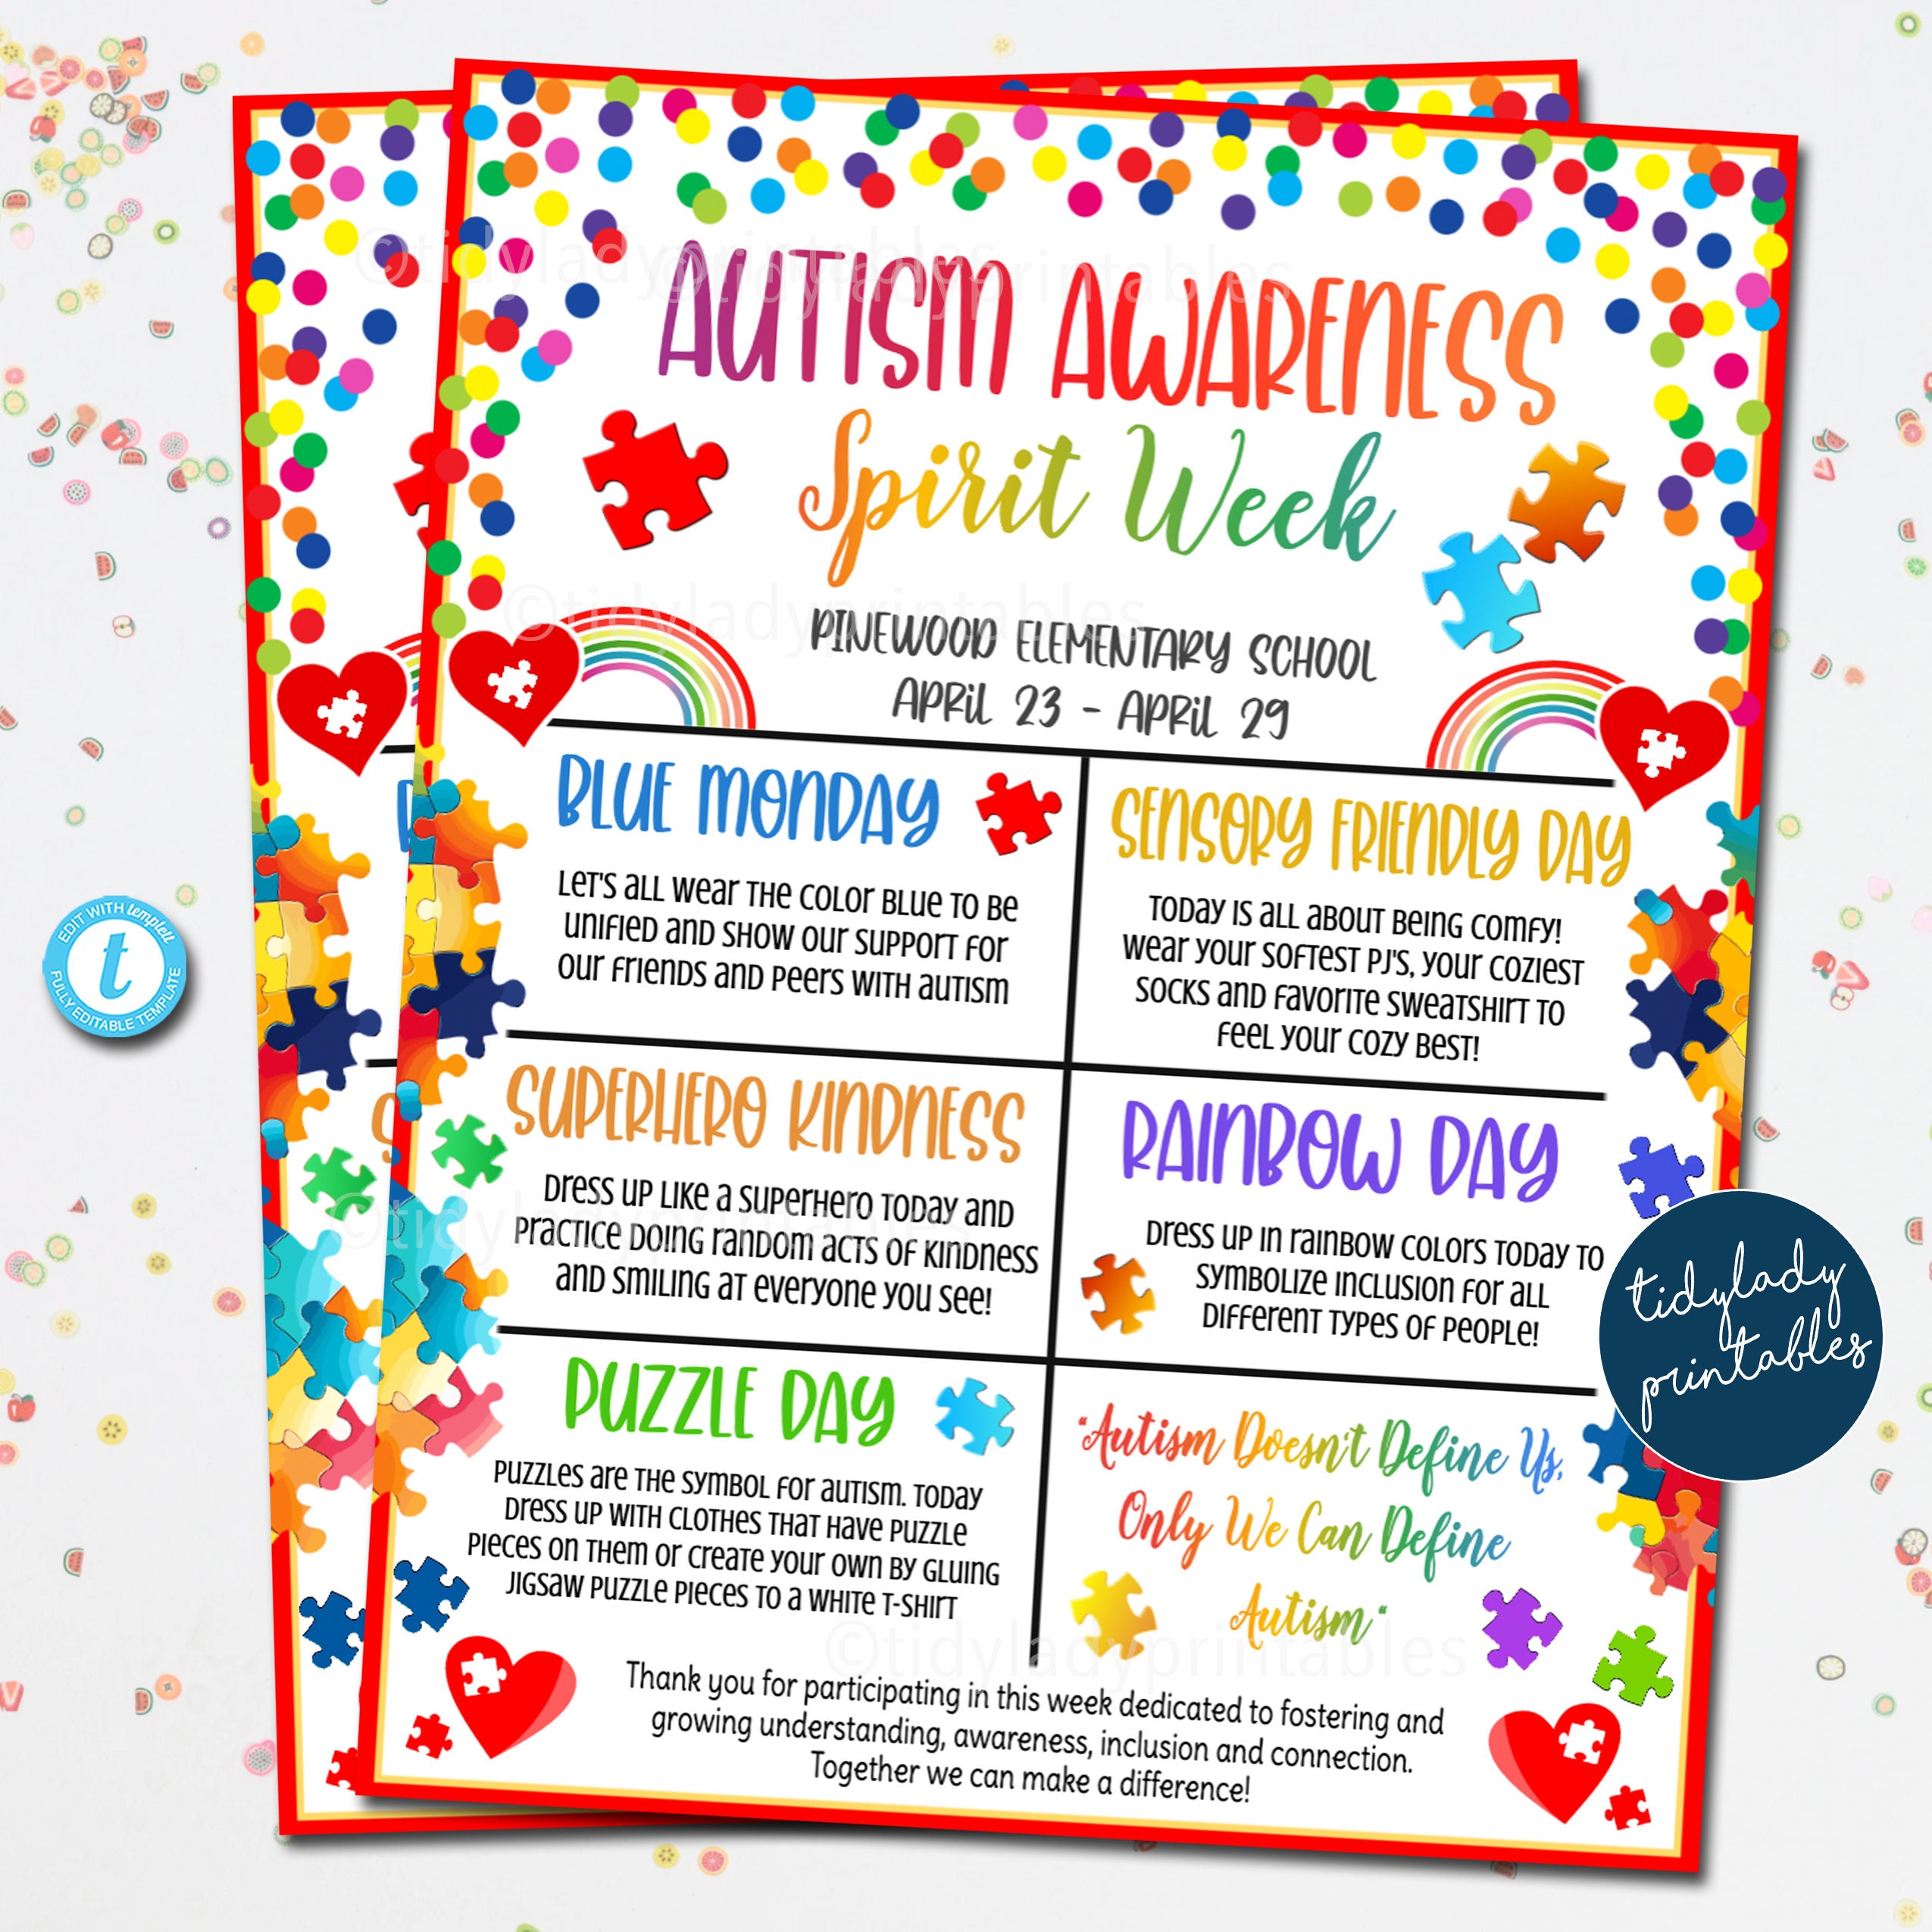 AUTISM AWARENESS
Spirit Week
PINEWOOD ELEMENTARY SCHOOL
APRIL 23 - APRIL 29
BLUE MONDAY
LET'S ALL WEAR THE COLOR BLUE TO BE
UNIFIED AND SHOW OUR SUPPORT FOR
OUR FRIENDS AND PEERS WITH AUTISM
SENSORY FRIENDLY DAY
TODAY IS ALL ABOUT BEING COMFY!
WEAR YOUR SOFTEST PJ'S, YOUR COZIEST
SOCKS AND FAVORITE SWEATSHIRT TO
FEEL YOUR COZY BEST!
SUPERHERO KINDNESS
DRESS UP LIKE A SUPERHERO TODAY AND
PRACTICE DOING RANDOM ACTS OF KINDNESS
AND SMILING AT EVERYONE YOU SEE!
RAINBOW DAY
DRESS UP IN RAINBOW COLORS TODAY TO
SYMBOLIZE INCLUSION FOR ALL
DIFFERENT TYPES OF PEOPLE!
PUZZLE DAY
PUZZLES ARE THE SYMBOL FOR AUTISM. TODAY
DRESS UP WITH CLOTHES THAT HAVE PUZZLE
PIECES ON THEM OR CREATE YOUR OWN BY GLUING
JIGSAW PUZZLE PIECES TO A WHITE T-SHIRT
"Autism Doesn't Define Us,
Only We Can Define
Autism"
Thank you for participating in this week dedicated to fostering and
growing understanding, awareness, inclusion and connection.
Together we can make a difference!
EDIT WITH templett
t
FULLY EDITABLE TEMPLATE
tidylady
printables
©tidyladyprintables
©tidyladyprintables
©tidyladyprintables
©tidyladyprintables
©tidyladyprintables